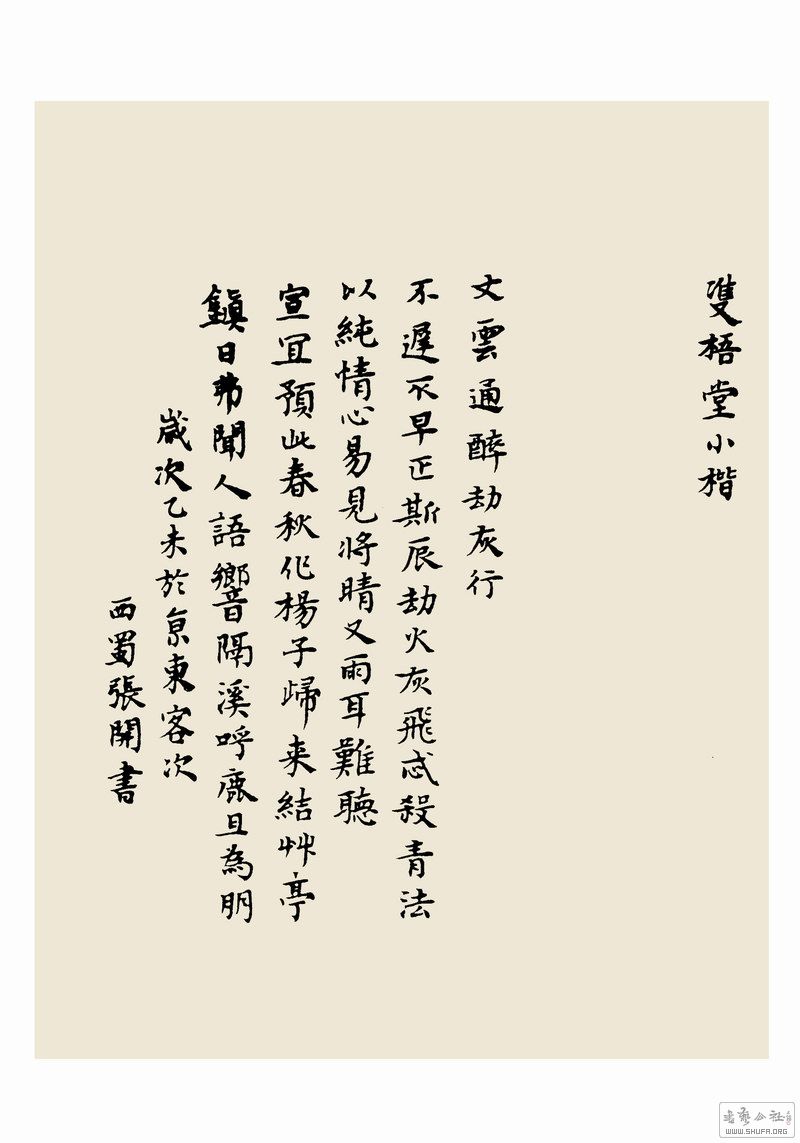 雙梧堂小楷
文雲通醉劫灰行
不遲不早正斯辰劫火灰飛忒殺青法
以純情心易見將晴又雨耳難聽
宣宜預此春秋化楊子歸来結艸亭
鎮日弗聞人語響隔溪呼鹿且為朋
歲次乙未於京東客次
西蜀張開書
WWW.SHUFA.ORG